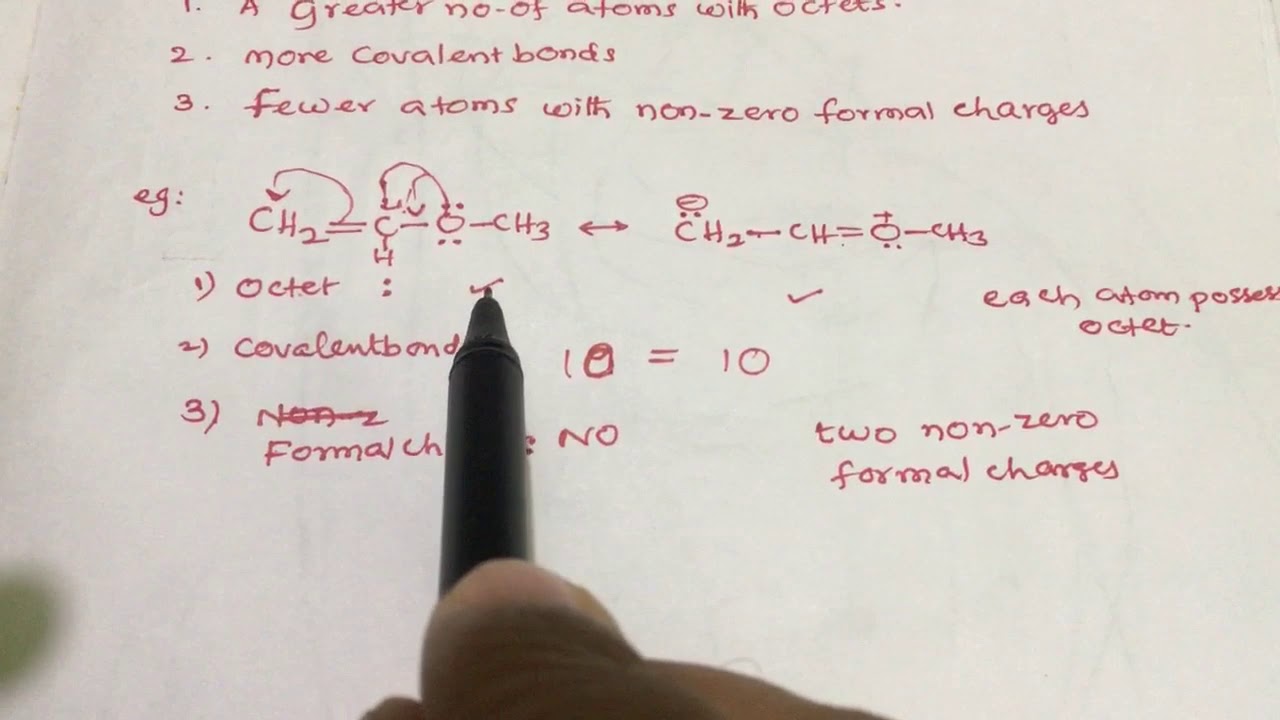 1. A Greater no-of atoms with octets.
2. more covalent bonds
3. Fewer atoms with non-zero formal charges
eg: CH2=C-Ö-CH3 ↔ C̈H2-CH=O-CH3
H ⊖ +
1) Octet : ✓ ✓ each atom posses
octet.
2) Covalentbond 10 = 10
3) Non-z
Formal ch : NO two non-zero
formal charges